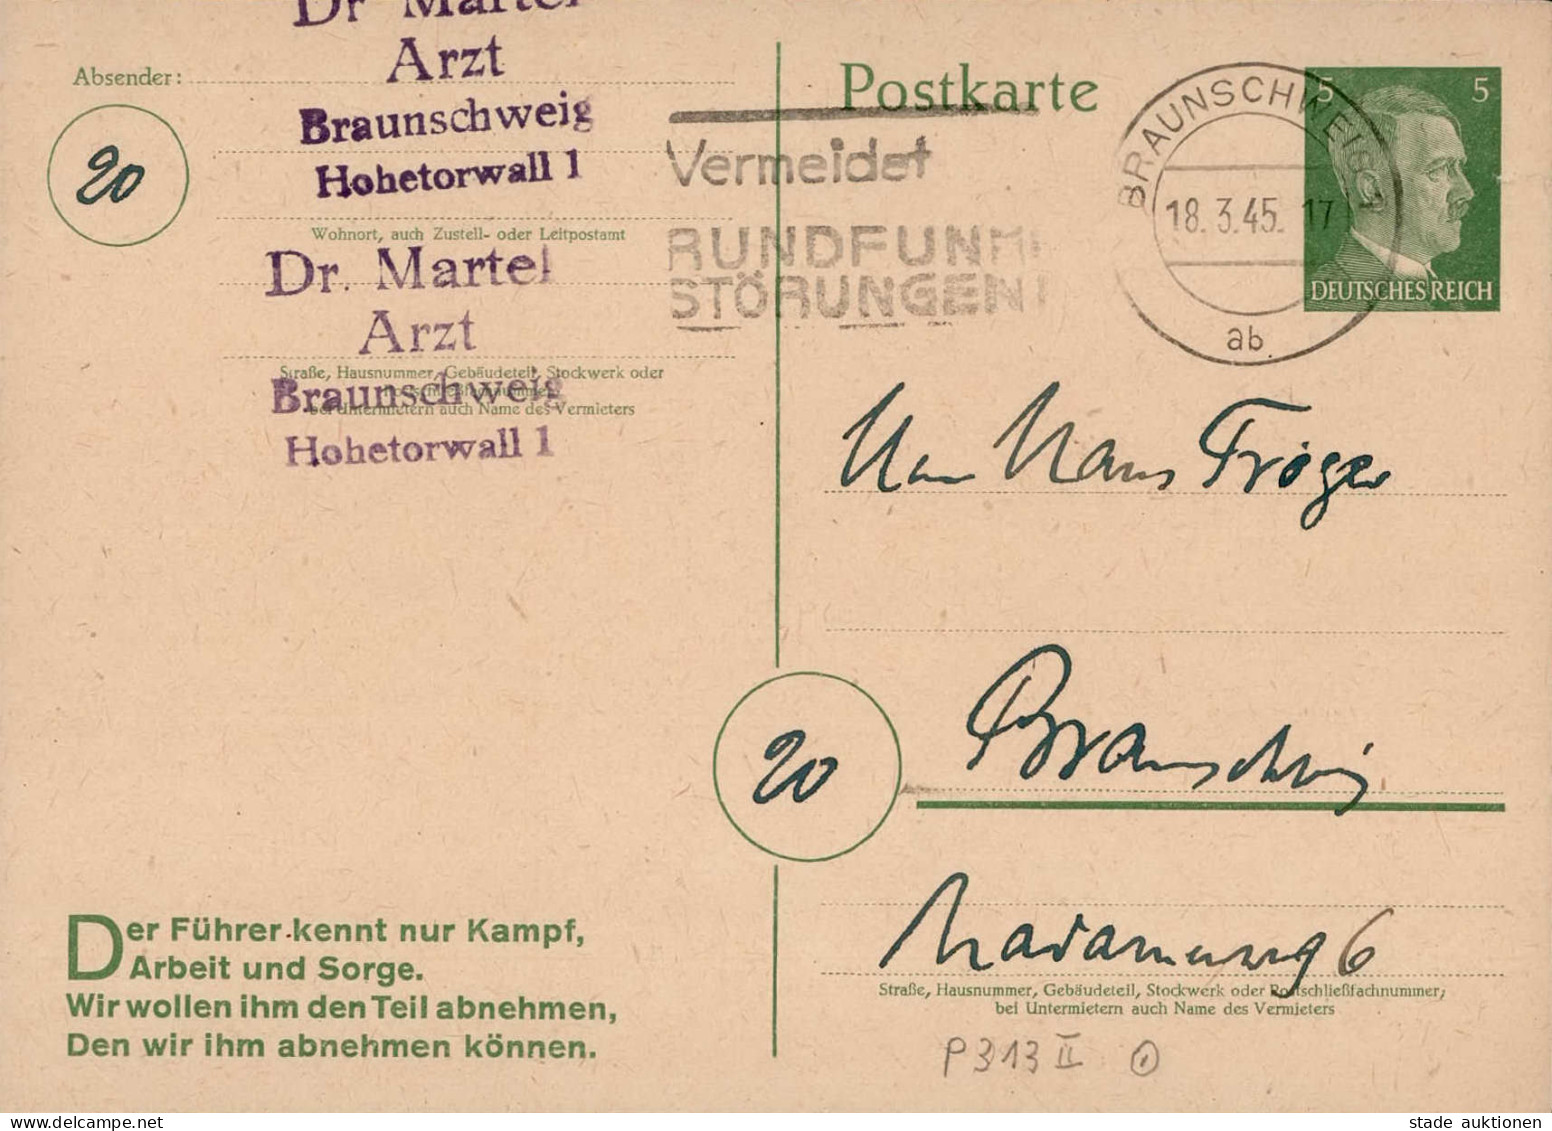 Dr Martel
Arzt
Braunschweig
Hohetorwall 1
Absender:
20
Wohnort, auch Zustell- oder Leitpostamt
Dr. Martel
Arzt
Straße, Hausnummer, Gebäudeteil, Stockwerk oder
bei Untermietern auch Name des Vermieters
Braunschweig
Hohetorwall 1
Der Führer kennt nur Kampf,
Arbeit und Sorge.
Wir wollen ihm den Teil abnehmen,
Den wir ihm abnehmen können.
Postkarte
Vermeidet
RUNDFUNK
STÖRUNGEN!
BRAUNSCHWEIG 1
18.3.45. 17
ab
5 5
DEUTSCHES REICH
Hans Tröger
20
Braunschweig
6
Straße, Hausnummer, Gebäudeteil, Stockwerk oder Postschließfachnummer;
bei Untermietern auch Name des Vermieters
P 313 II
stade auktionen